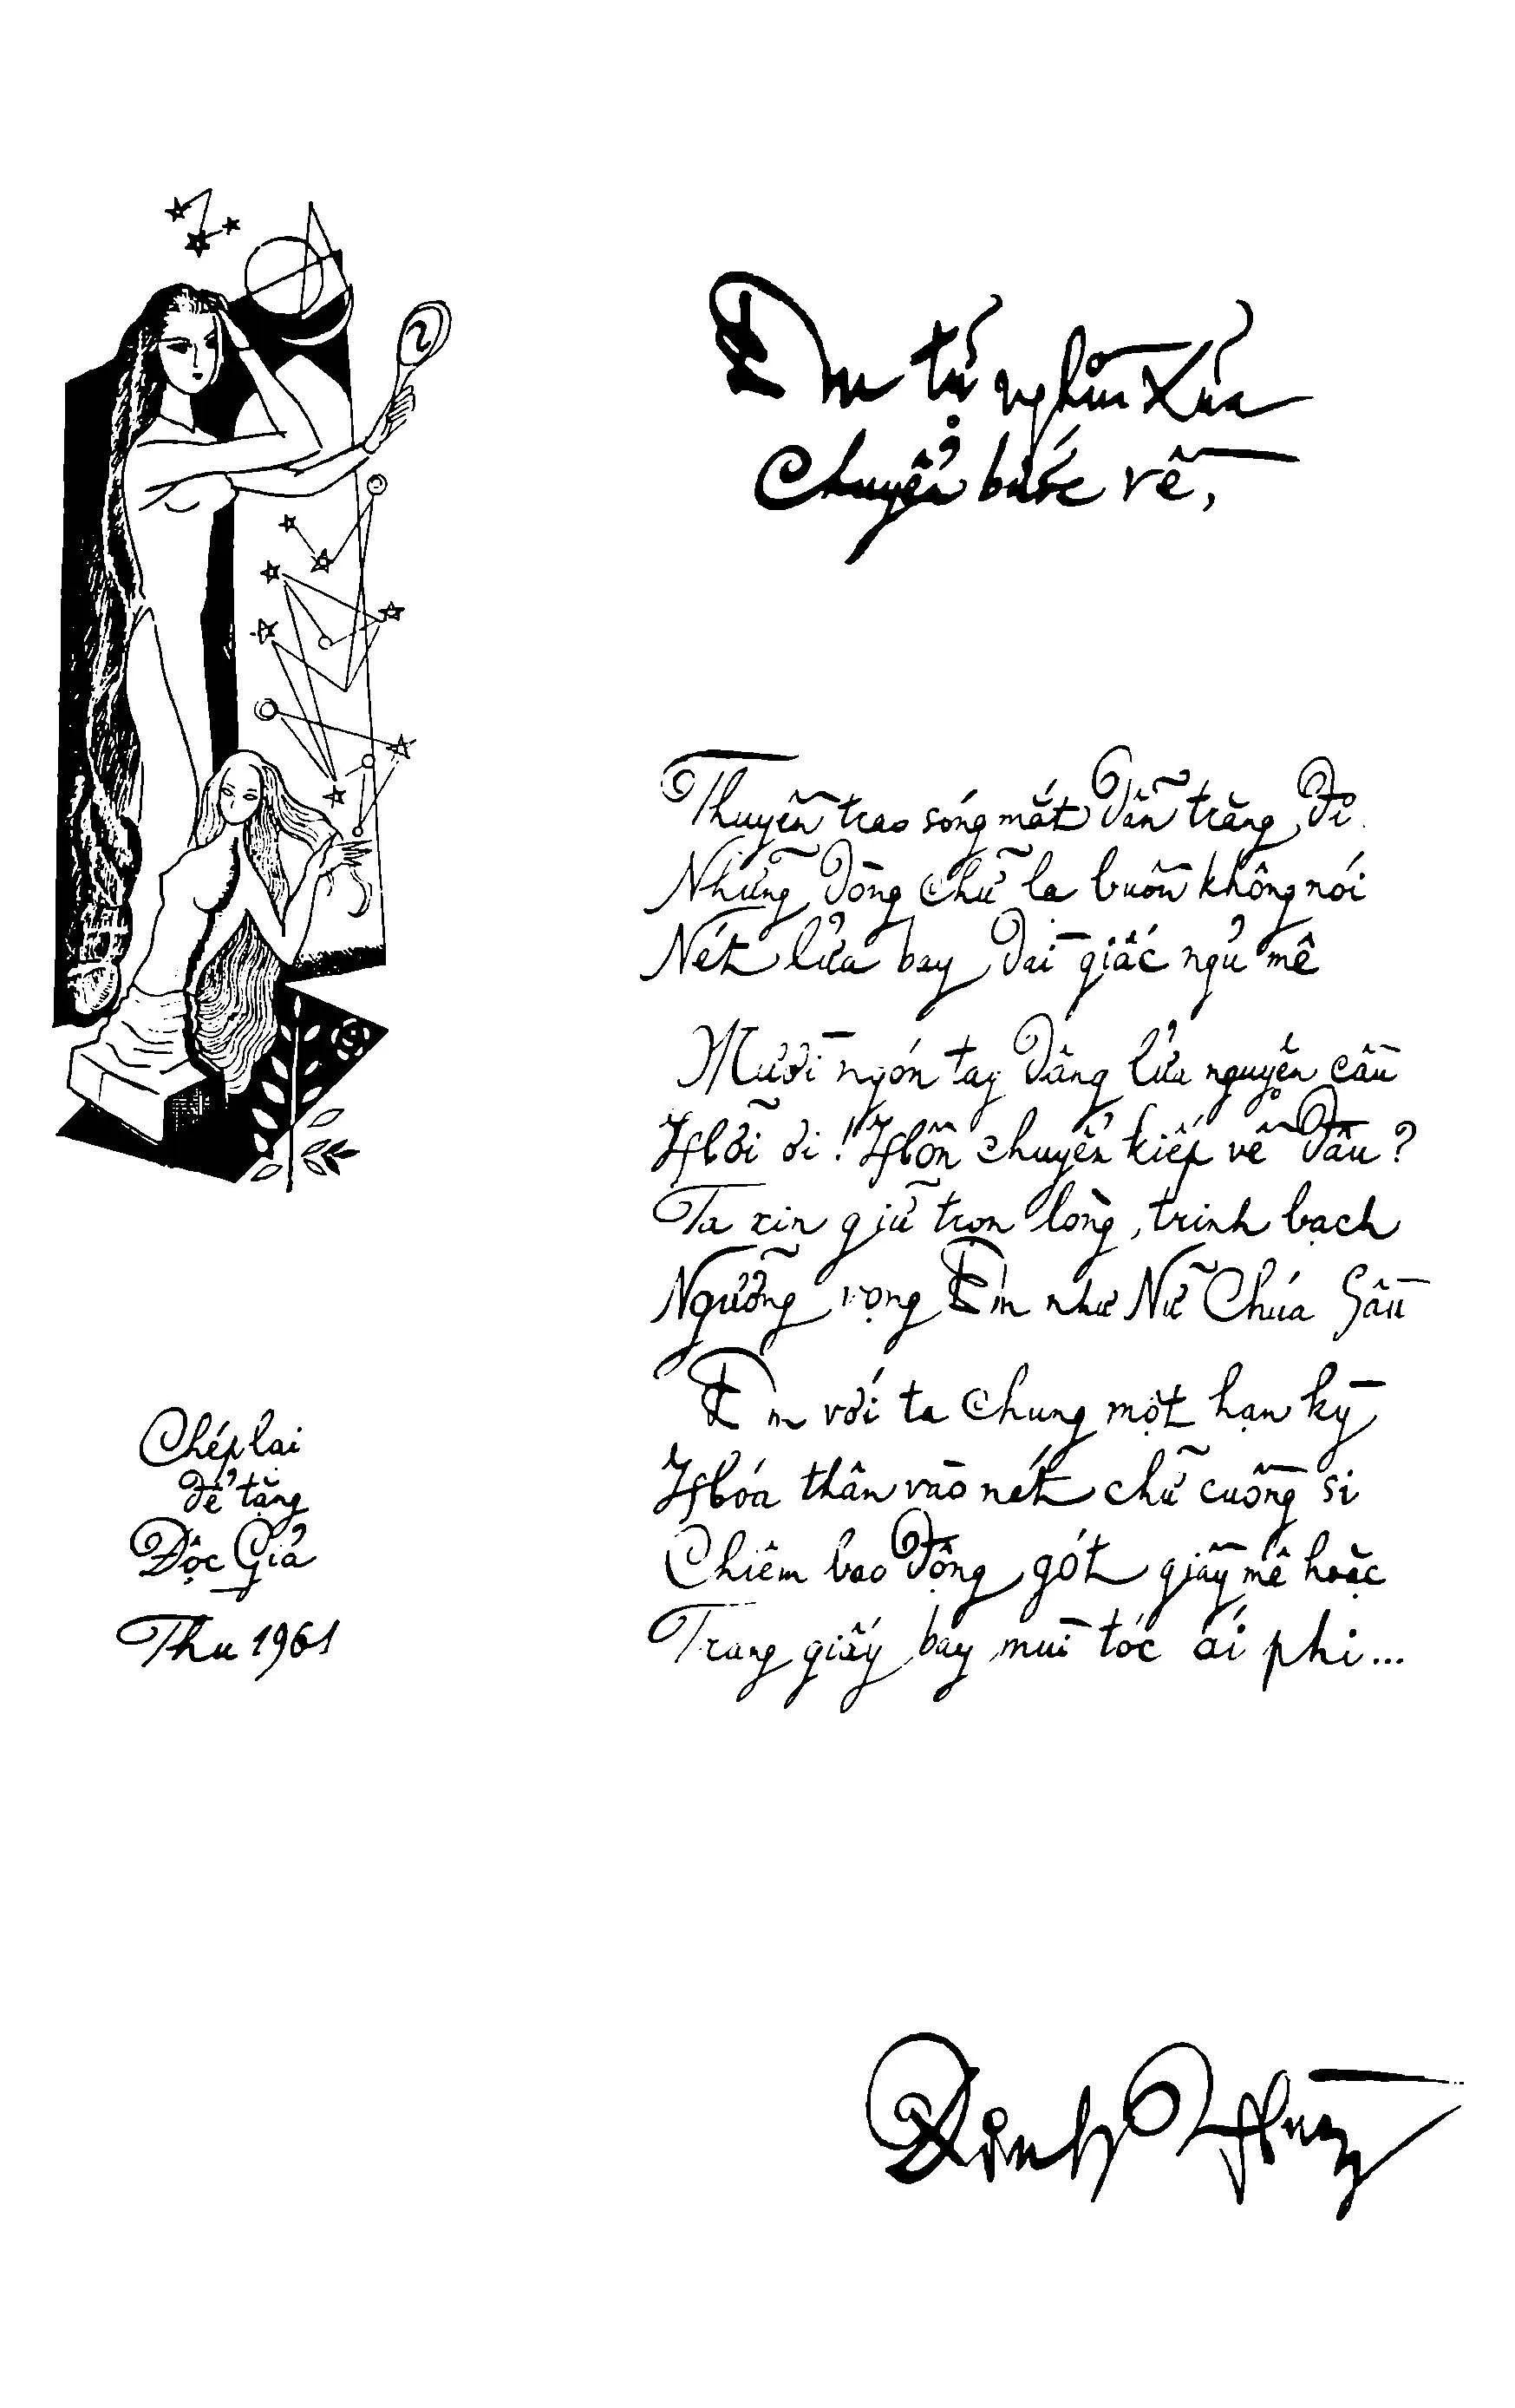 Em từ nghìn xưa
chuyển bước về,
Thuyền trao sóng mắt dẫn trăng đi.
Những dòng chữ lạ buồn không nói
Nét lửa bay dài giấc ngủ mê
Mười ngón tay dâng lửa nguyện cầu
Hỡi ơi! Hồn chuyển kiếp về đâu?
Ta xin giữ trọn lòng trinh bạch
Ngưỡng vọng Em như Nữ Chúa Sầu
Em với ta chung một hạn kỳ
Hóa thân vào nét chữ cuồng si
Chiêm bao động gót giầy mê hoặc
Trang giấy bay mùi tóc ái phi...
Chép lại
để tặng
Độc Giả
Thu 1961
Đinh Hùng